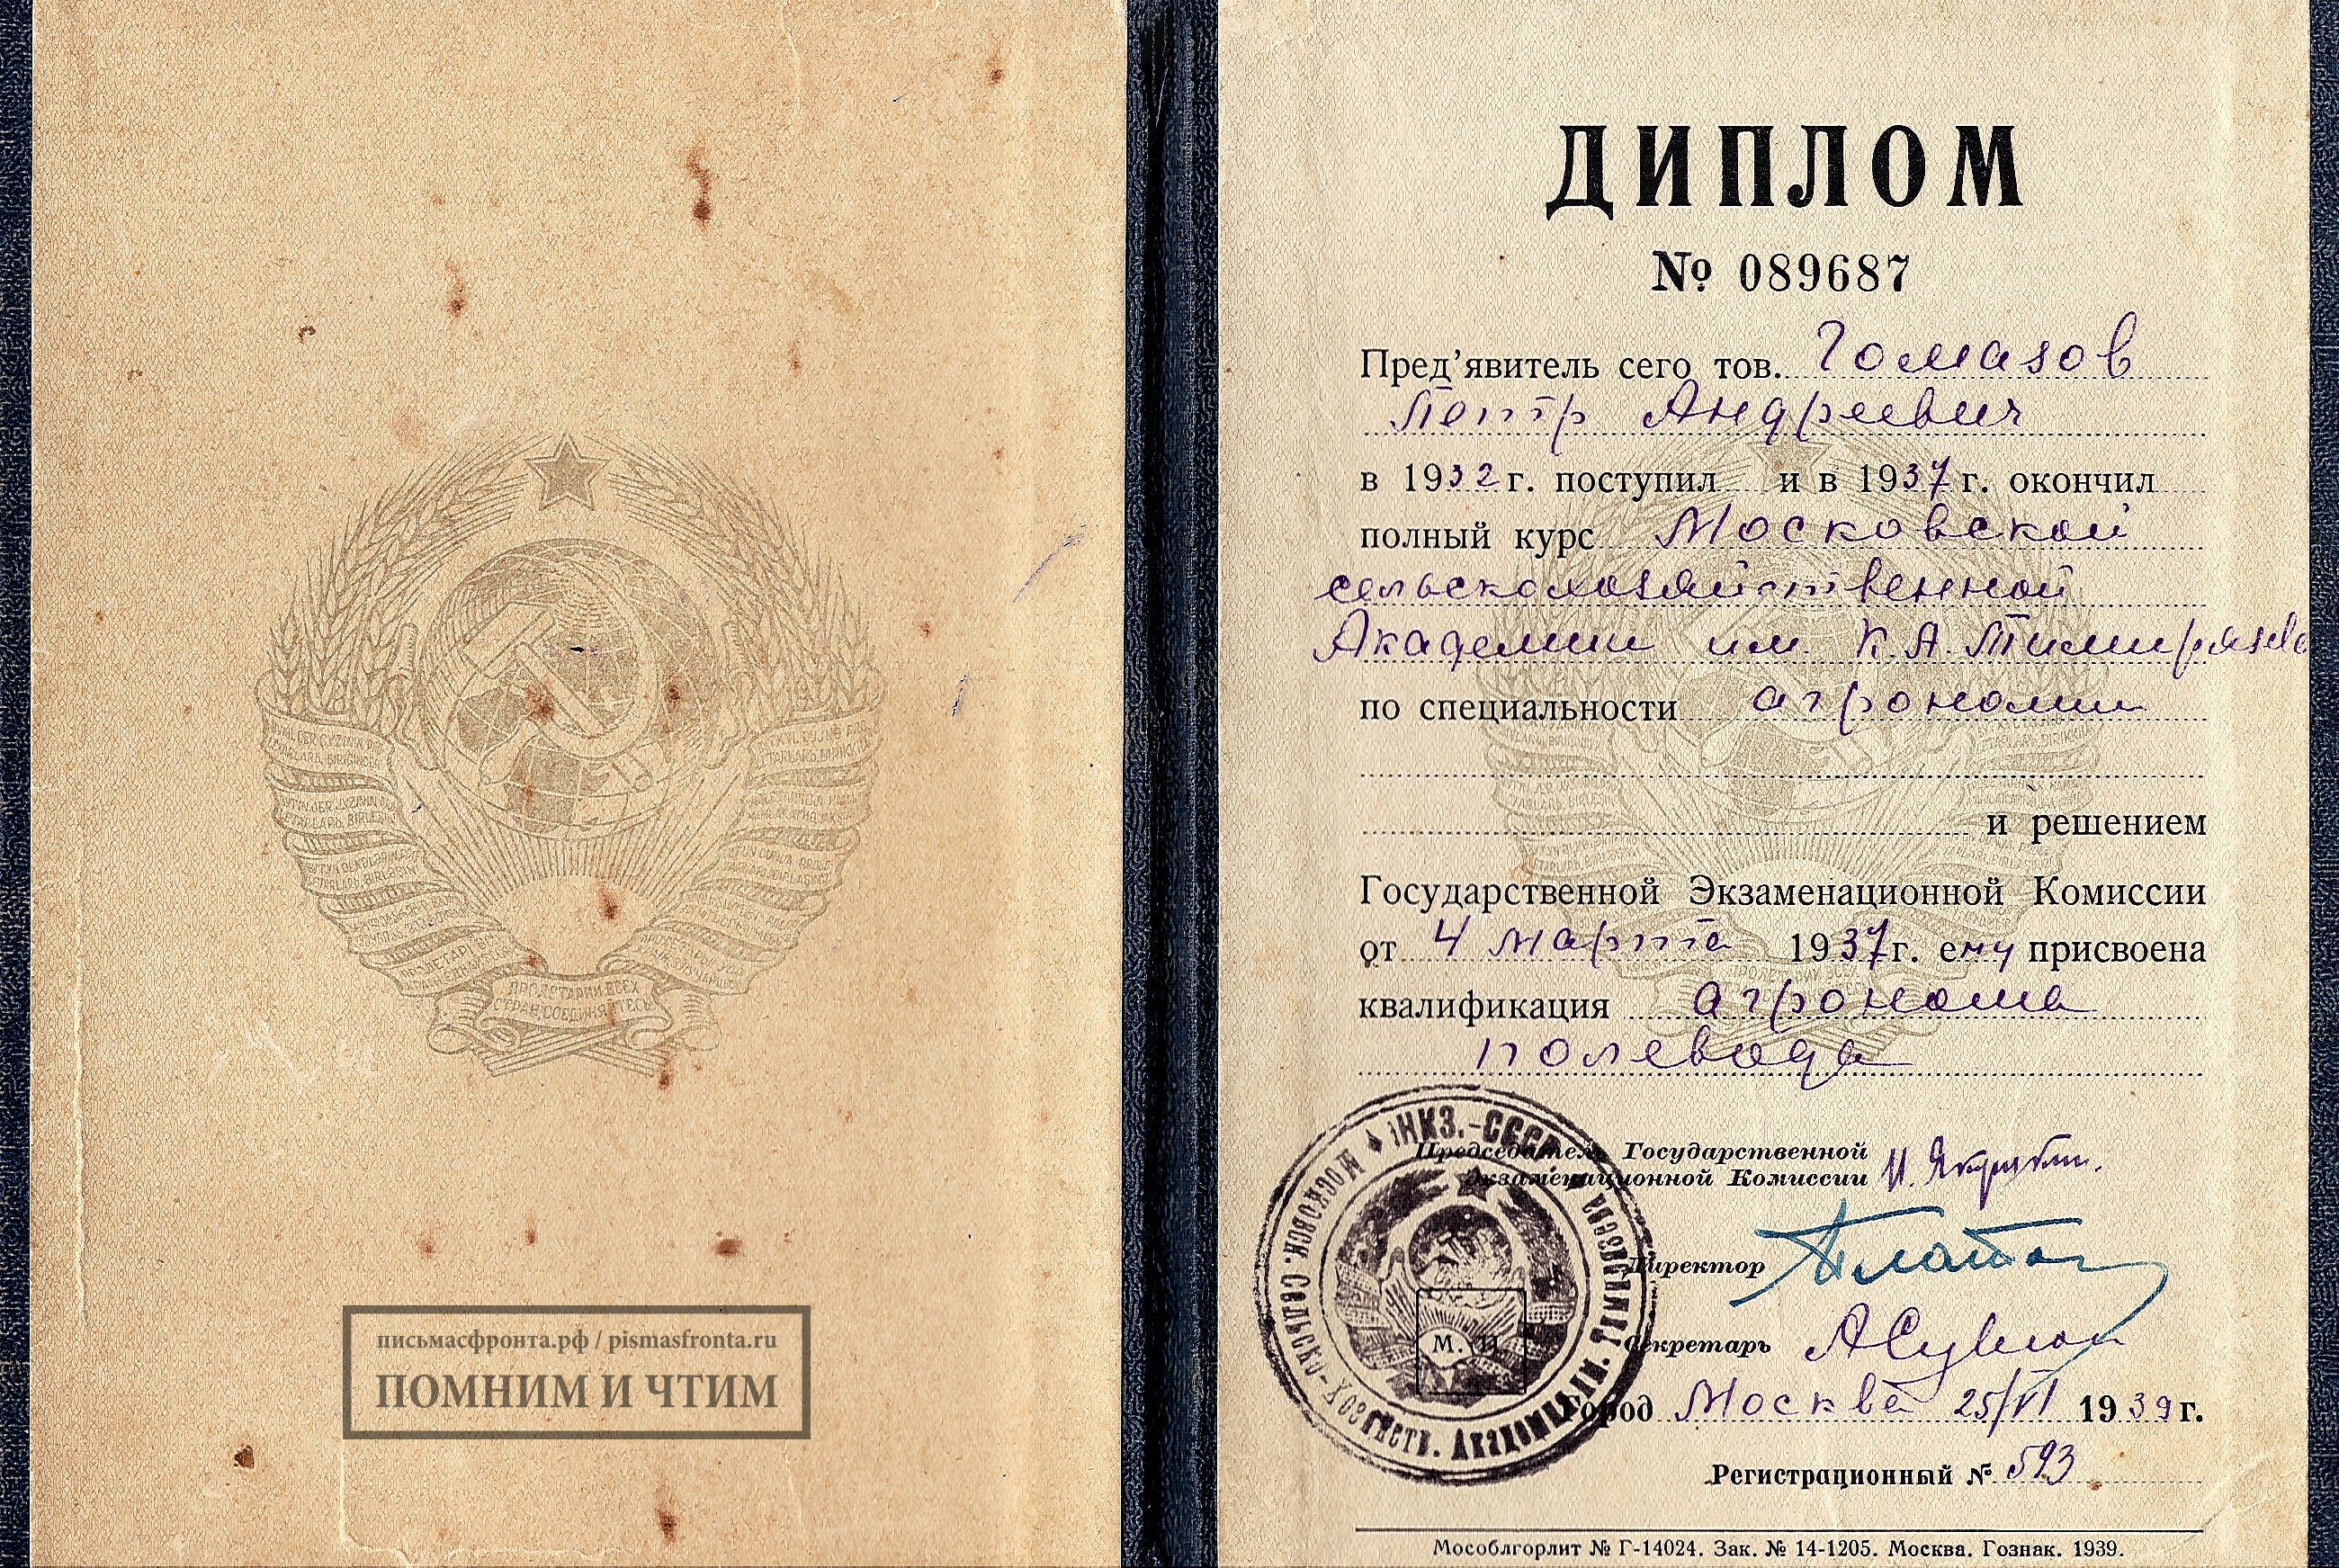 ПРОЛЕТАРИИ ВСЕХ
СТРАН СОЕДИНЯЙТЕСЬ
письмасфронта.рф / pismasfronta.ru
ПОМНИМ И ЧТИМ
ДИПЛОМ
№ 089687
Пред'явитель сего тов. Гомазов
Петр Андреевич
в 1932 г. поступил и в 1937 г. окончил
полный курс Московской
сельскохозяйственной
Академии им. К. А. Тимирязева
по специальности агрономии
и решением
Государственной Экзаменационной Комиссии
от 4 марта 1937 г. ему присвоена
квалификация агронома
полевода
Председатель Государственной
Экзаменационной Комиссии
Директор
Секретарь
М. П.
Город Москва 25/VI 1939 г.
Регистрационный № 593
Мособлгорлит № Г-14024. Зак. № 14-1205. Москва. Гознак. 1939.